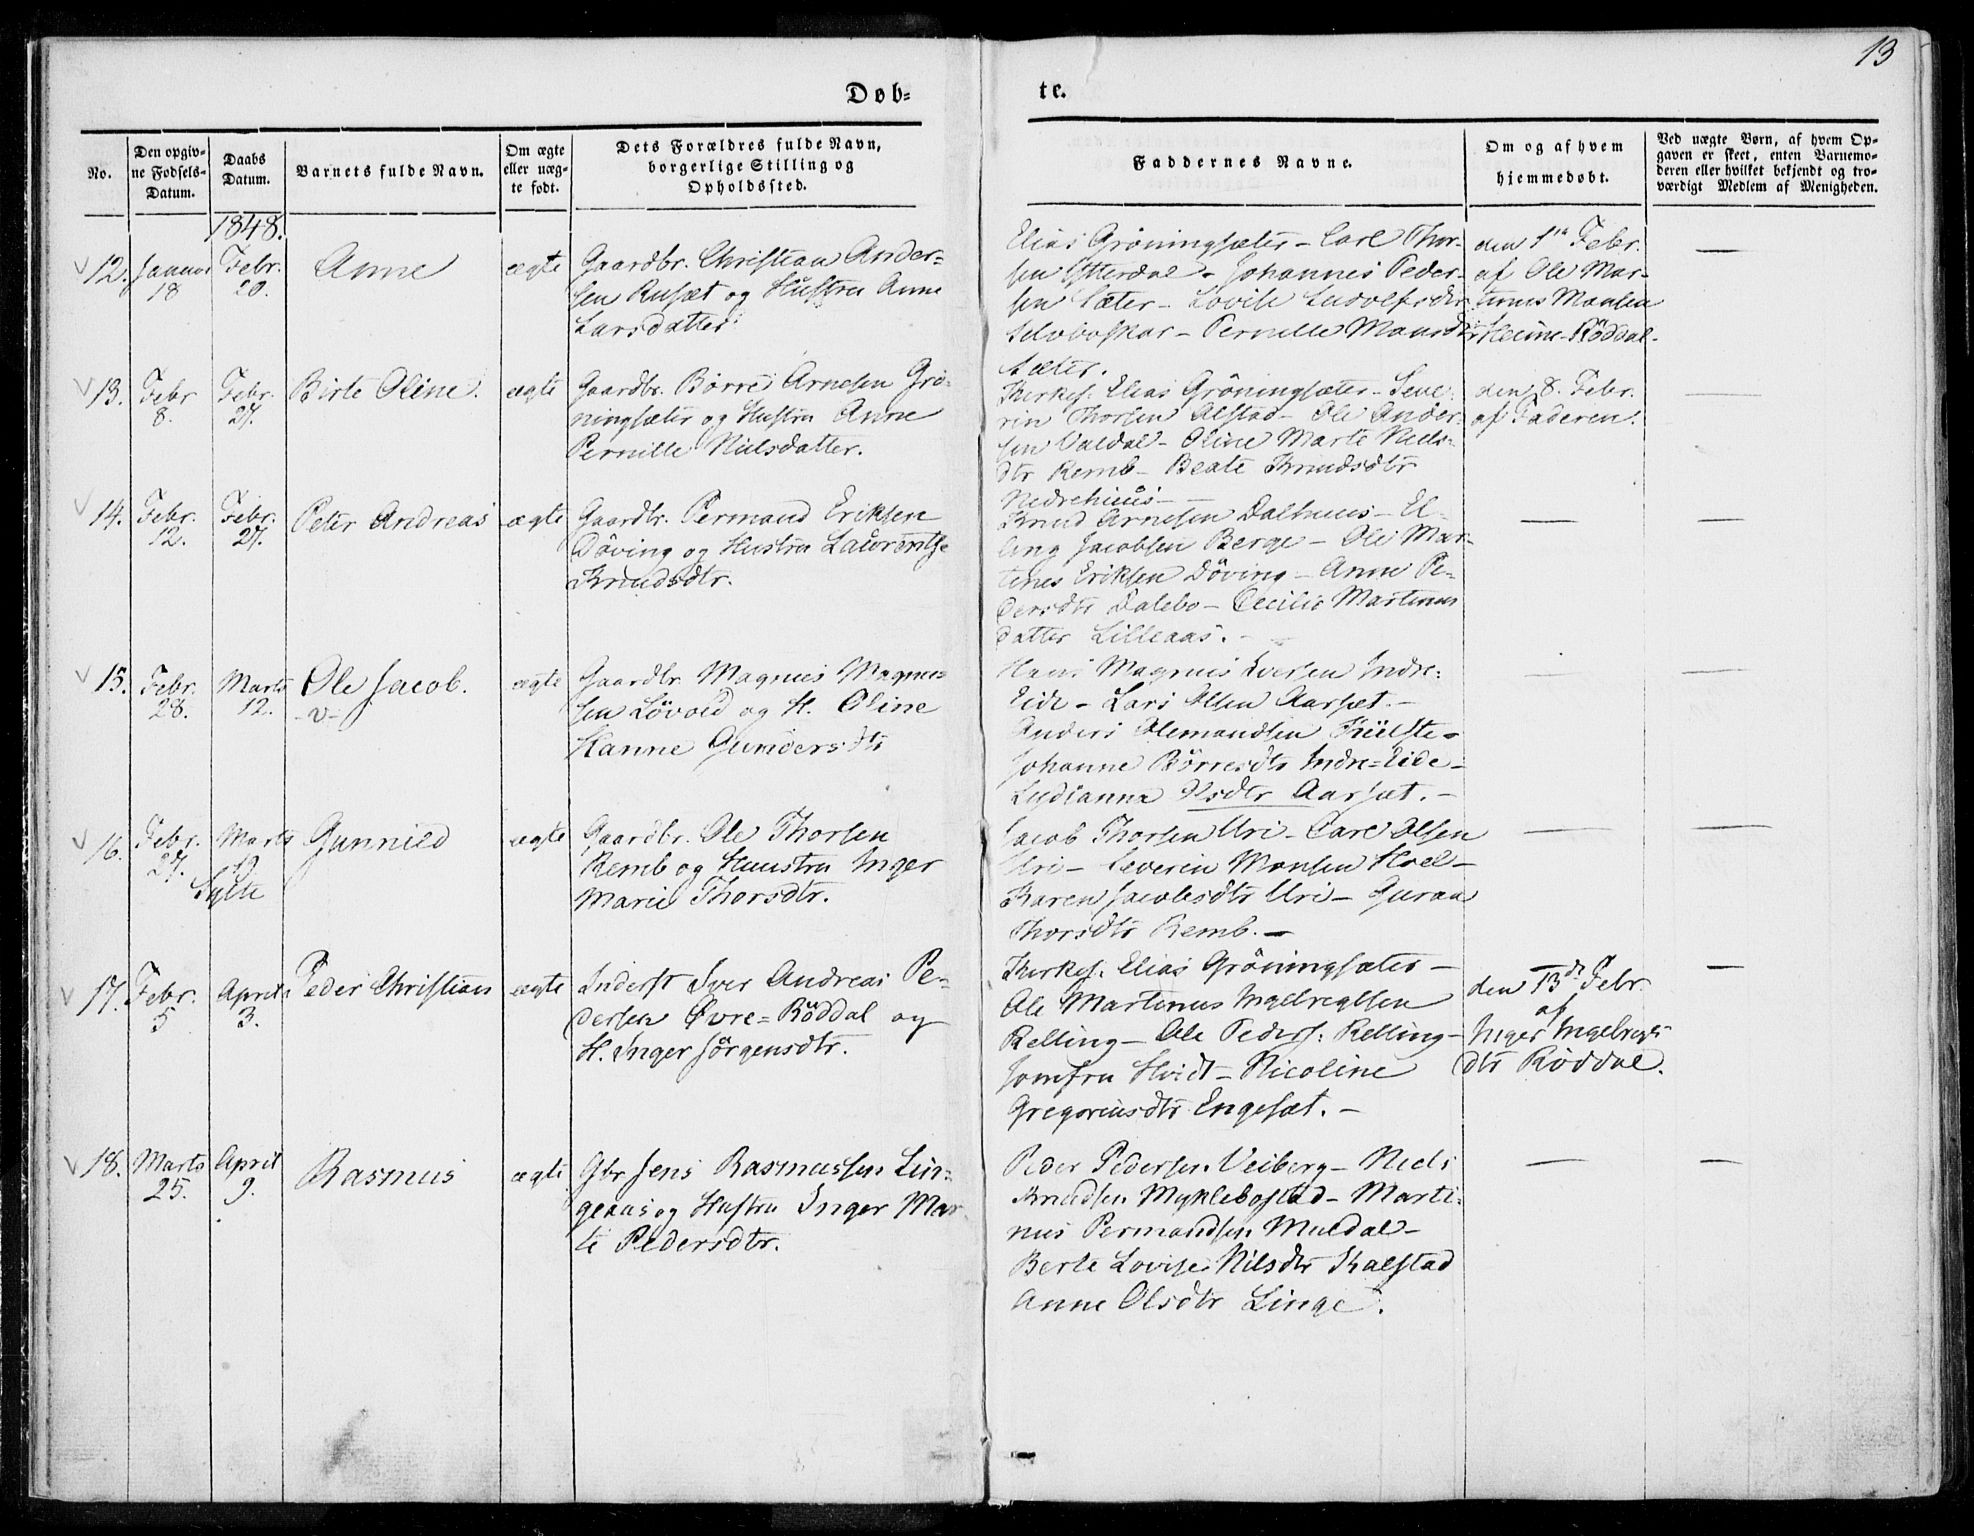 13
Døb-
te.
No.
Den opgiv-
ne Fødsels-
Datum.
Daabs
Datum.
Barnets fulde Navn.
Om ægte
eller uæg-
te født.
Dets Forældres fulde Navn,
borgerlige Stilling og
Opholdssted.
Faddernes Navne.
Om og af hvem
hjemmedøbt.
Ved uægte Børn, af hvem Op-
gaven er skeet, enten Barnemo-
deren eller hvilket bekjendt og tro-
værdigt Medlem af Menigheden.
1848.
12.
Januar
18
Febr.
20.
Anne
ægte
Gaardbr. Christian Ander-
sen Rusæt og Hustru Anne
Larsdatter
Elias Gröningsæter - Carl Thor-
sen Ytterdal - Johannes Peder-
sen Sæter - Lovise Ludolfsdtr
Selboskar - Pernille Monsdtr
Sæter.
den 1ste Febr.
af Ole Mar-
tinus Monsen
Heime-Röddal.
—
13.
Febr
8.
Febr.
27.
Birte Oline.
ægte
Gaardbr. Börre Arnesen Grö-
ningsæter og Hustru Anne
Pernille Nielsdatter.
Kirkes. Elias Gröningsæter - Seve-
rin Thorsen Alstad - Ole Ander-
sen Valdal - Oline Marte Niels-
dtr Remb - Beate Knudsdtr
Nedrehuus -
den 8. Febr.
af Faderen.
—
14.
Febr.
12.
Febr.
27.
Peter Andreas
ægte
Gaardbr. Permand Eriksen
Döving og Hustru Laurentse
Knudsdtr.
Knud Arnesen Dalhuus - El-
ling Jacobsen Berge - Ole Mar-
tines Eriksen Döving - Anne Pe-
dersdtr Dalebo - Cecilie Martinus
datter Lilleaas. -
—
—
15.
Febr.
28.
Marts
12.
Ole Jacob.
- v -
ægte
Gaardbr. Magnus Magnus-
sen Lövold og H. Oline
Hanne Gundersdtr
Hans Magnus Iversen Indre-
Eide - Lars Olsen Aarset. -
Anders Olemandsen Kulste -
Johanne Börresdtr Indre-Eide -
Ludianna Olsdtr Aarset. -
—
—
16.
Febr.
27.
Marts
19
Sylte
Gunnild
ægte
Gaardbr. Ole Thorsen
Remb og Huustru Inger
Marie Thorsdtr.
Jacob Thorsen Uri - Carl Olsen
Uri - Severin Monsen Hoel -
Karen Jacobsdtr Uri - Guraa
Thorsdtr Remb. -
—
—
17.
Febr.
5
April
3.
Peder Christian
ægte
Inderst Iver Andreas Pe-
dersen Övre-Röddal og
H. Inger Jörgensdtr.
Kirkes. Elias Gröningsæter -
Ole Martinus Ingebregtsen
Relling - Ole Peders. Relling -
Jomfru Hvidt - Nicoline
Gregoriusdtr Engeset. -
den 13de Febr.
af
Inger Ingebregts
dtr Röddal.
—
18.
Marts
25.
April
9.
Rasmus
ægte
Gbr Jens Rasmussen Lin-
geaas og Hustru Inger Mar
te Pedersdtr.
Peder Pedersen Veiberg - Niels
Knudsen Myklebostad - Marti-
nus Permandsen Muldal -
Berte Lovise Nilsdtr Kalstad
Anne Olsdtr Linge.
—
—